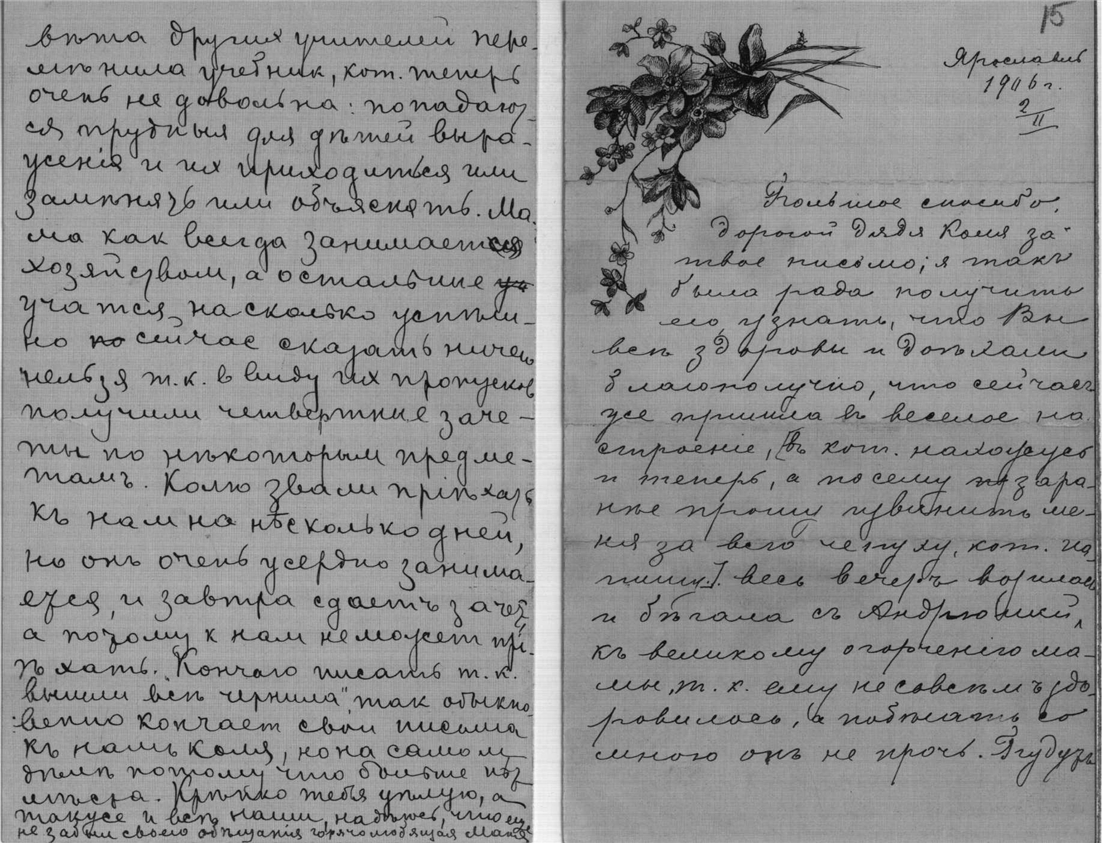 вѣта другихъ учителей пере-
мѣнила учебникъ, кот. теперь
очень не довольна: попадают-
ся трудныя для дѣтей выра-
женія и их приходится или
замѣнять или объяснять. Ма-
ма как всегда занимается
хозяйством, а остальные
учатся, насколько успѣш-
но сейчас сказать ничего
нельзя т.к. в виду их пропусков
получили четвертные заче-
ты по нѣкоторым предме-
тамъ. Колю звали пріѣхать
къ нам на нѣсколько дней,
но онъ очень усердно занима-
ется, и завтра сдаетъ зачет,
а потому к нам не может прі-
ѣхать. "Кончаю писать т.к.
вышли всѣ чернила", так обыкно-
венно кончает свои письма
къ намъ Коля, но на самом
дѣлѣ потому что больше нѣт
мѣста. Крѣпко тебя цѣлую, а
также и всѣ наши, надѣюсь, что
не забыл своего обѣщанія горячо любящая Маня
15
Ярославль
1906 г.
2/II
Большое спасибо,
дорогой дядя Коля за
твое письмо; я такъ
была рада получить
его, узнать, что Вы
всѣ здоровы и доѣхали
благополучно, что сейчасъ
же пришла въ веселое на-
строеніе, [въ кот. нахожусь
и теперь, а посему зара-
нѣе прошу извинить ме-
ня за всю чепуху, кот. на-
пишу.] весь вечеръ возилась
и бѣгала съ Андрюшкой,
къ великому огорченію ма-
мы, т. к. ему не совсѣмъ здо-
ровилось, а побѣгать со
мною онъ не прочь. Грудує